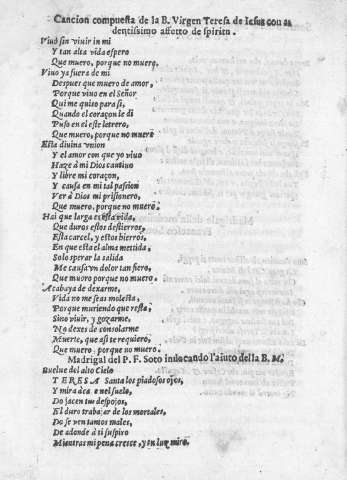 Cancion compuesta de la B. Virgen Teresa de Iesus con ar
dentissimo affetto de spiritu.
Viuo sin viuir in mi
Y tan alta vida espero
Que muero, porque no muero.
Viuo ya fuera de mi
Despues que muero de amor,
Porque viuo en el Señor
Qui me quiso para si,
Quando el coraçon le di
Puso en el este letrero,
Que muero, porque no muero
Esta diuina vnion
Y el amor con que yo viuo
Haze à mi Dios cautiuo
Y libre mi coraçon,
Y causa en mi tal passion
Ver à Dios mi prisionero,
Que muero, porque no muero.
Hai que larga es esta vida,
Que duros estos destierros,
Esta carcel, y estos hierros,
En que esta el alma mettida,
Solo sperar la salida
Me causa vn dolor tan fiero,
Que muoro porque no muero.
Acabaya de dexarme,
Vida no me seas molesta,
Porque muriendo que resta,
Sino viuir, y gozarme,
No dexes de consolarme
Muerte, que assi te requiero,
Que muero, porque no muero.
Madrigal del P. F. Soto inuocando l'aiuto della B. M.
Buelue del alto Cielo
TERESA Santa los piadosos ojos,
Y mira aca en el suelo,
Do jacen tus despojos,
El duro trabajar de los mortales,
Do se ven tantos males,
De adonde à ti suspiro
Mientras mi pena cresce, y tu luz miro.